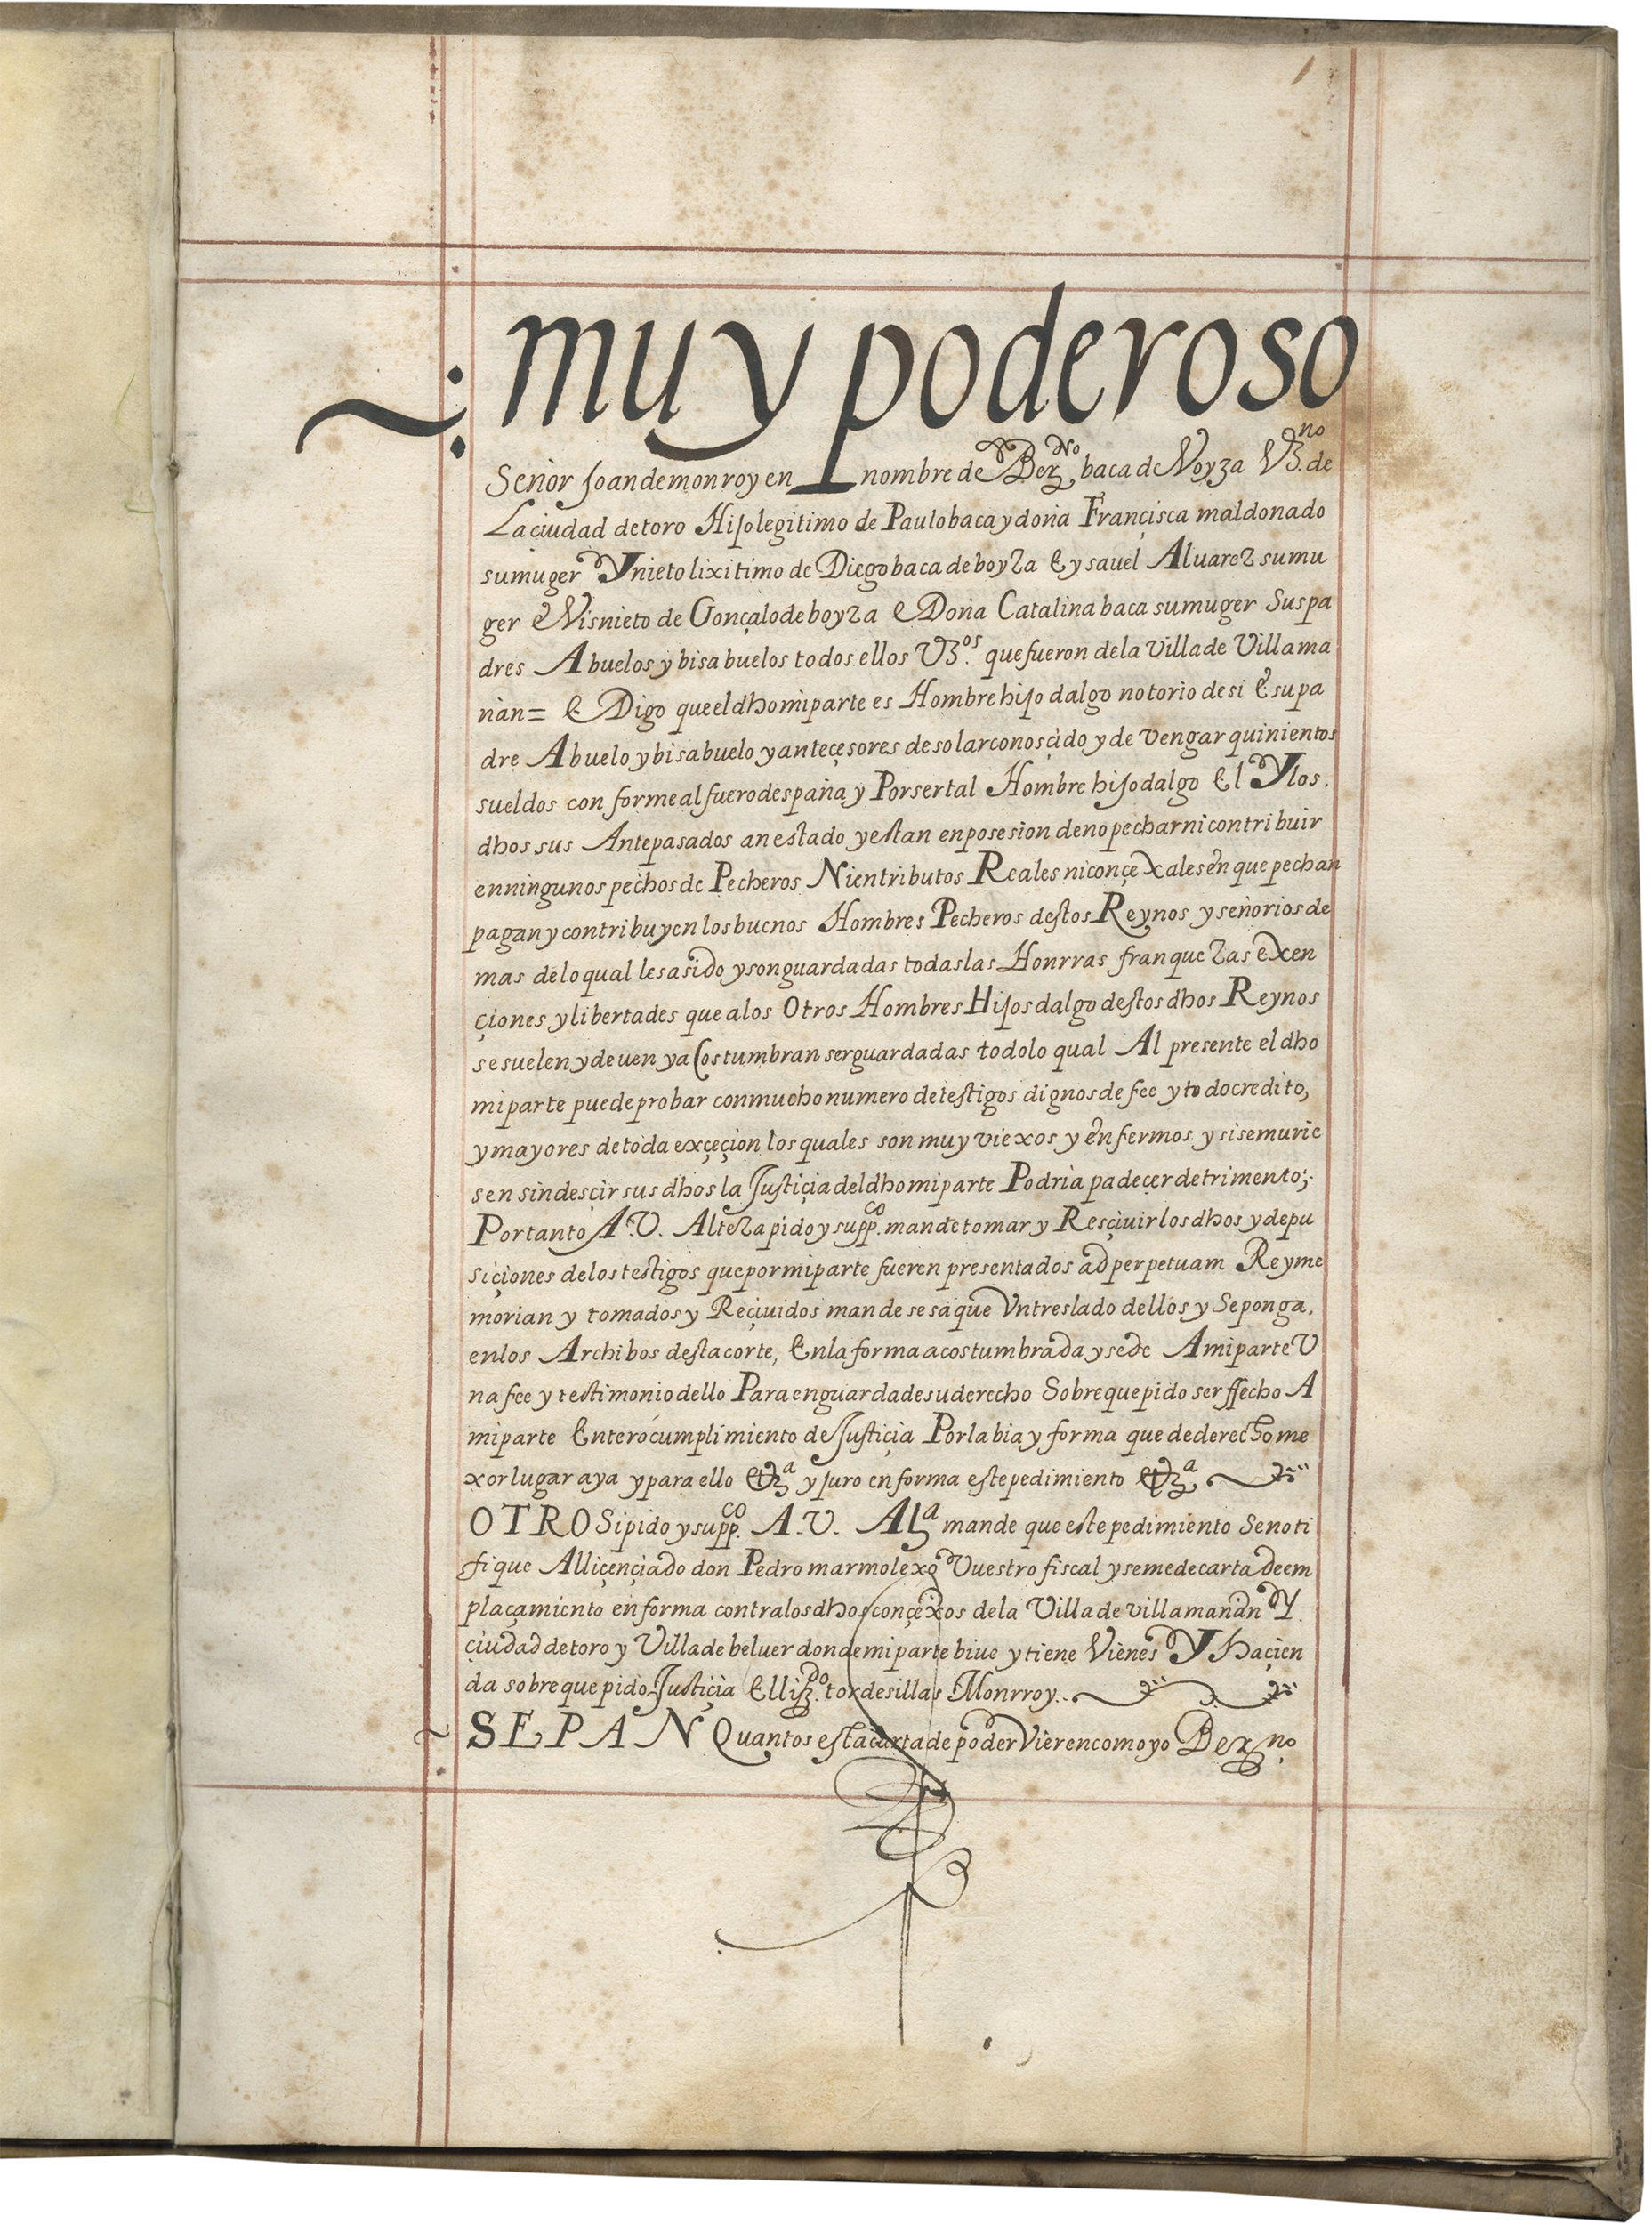 1
muy poderoso
Señor Joan de monroy en nombre de Berno baca de Voyza Vzno. de
La ciudad de toro Hijo legitimo de Paulo baca y doña Francisca maldonado
su muger Y nieto lixitimo de Diego baca de boyza E ysauel Aluarez su mu
ger E Visnieto de Gonçalo de boyza E Doña Catalina baca su muger Sus pa
dres Abuelos y bisabuelos todos ellos Vzos. que fueron de la Villa de Villama
ñan = E Digo que el dho mi parte es Hombre hijo dalgo notorio de si E su pa
dre Abuelo y bisabuelo y anteçesores de solar conosçido y de vengar quinientos
sueldos con forme al fuero despaña y Por ser tal Hombre hijo dalgo El Y los.
dhos sus Antepasados an estado y estan en posesion de no pechar ni contribuir
en ningunos pechos de Pecheros Ni en tributos Reales ni conçexales en que pechan
pagan y contribuyen los buenos Hombres Pecheros destos Reynos y señorios de
mas de lo qual les a sido y son guardadas todas las Honrras franquezas exen
çiones y libertades que a los Otros Hombres Hijos dalgo destos dhos Reynos
se suelen y deuen y a Costumbran ser guardadas todo lo qual Al presente el dho
mi parte puede probar con mucho numero de testigos dignos de fee y todo credito,
y mayores de toda exçeçion los quales son muy viexos y enfermos y si se murie
sen sin desçir sus dhos la Justiçia del dho mi parte Podria padeçer detrimento;.
Por tanto A.V. Alteza pido y suppco. mande tomar y Resçiuir los dhos y depu
siçiones de los testigos que por mi parte fueren presentados ad perpetuam Rey me
morian y tomados y Reçiuidos mande se saque Vn treslado dellos y Se ponga.
en los Archibos desta corte, En la forma acostumbrada y se de A mi parte V
na fee y testimonio dello Para en guarda de su derecho Sobre que pido ser ffecho A
mi parte Entero cumplimiento de Justiçia Por la bia y forma que de derecho me
xor lugar aya y para ello &a y juro en forma este pedimiento &a
OTRO Si pido y suppco. A.V. Ala mande que este pedimiento Se noti
fique Al liçençiado don Pedro marmolexo Vuestro fiscal y se me de carta de em
plaçamiento en forma contra los dhos conçexos de la Villa de villamañan Y
ciudad de toro y Villa de beluer donde mi parte biue y tiene Vienes Y haçien
da sobre que pido Justiçia El lizdo. tordesillas Monrroy..
SEPAN Quantos esta carta de poder Vieren como yo Berno